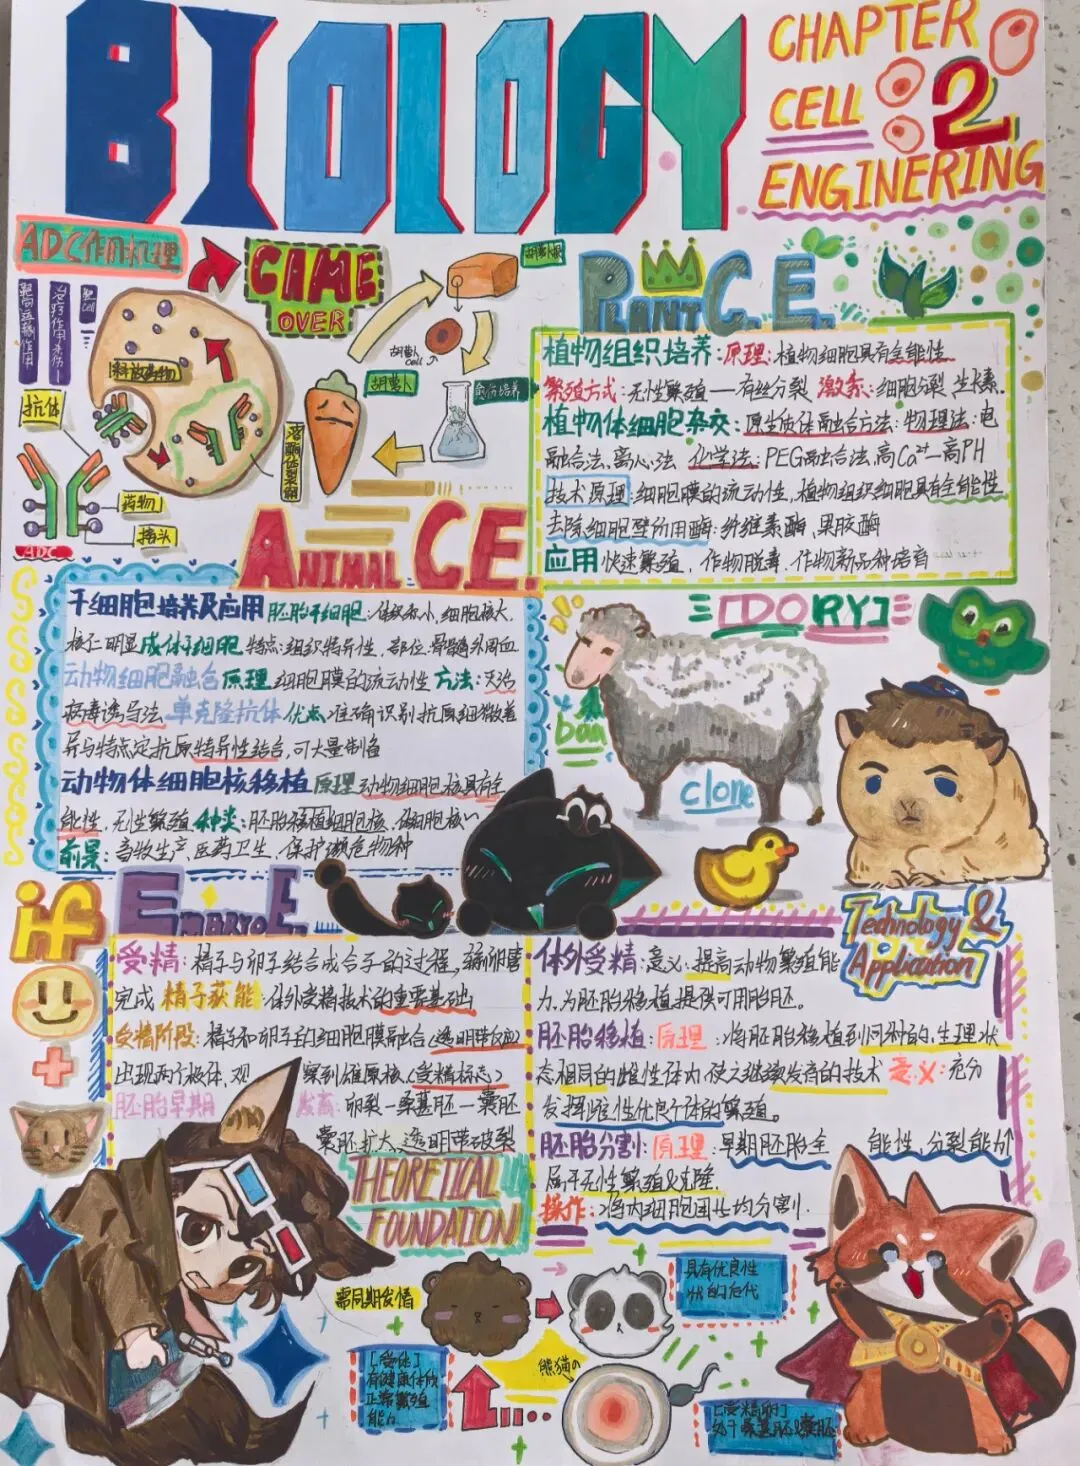 BIOLOGY
CHAPTER 2
CELL
ENGINERING
ADC作用机理
靶向运输作用
cell
释放药物
抗体
药物
接头
ADC
CIME
OVER
胡萝卜
cell
胡萝卜
PLANT C.E.
植物组织培养：原理：植物细胞具有全能性
繁殖方式：无性繁殖——有丝分裂 激素：细胞分裂 生长素.
植物体细胞杂交：原生质体融合方法：物理法：电
融合法、离心法 化学法：PEG融合法，高Ca²⁺—高PH
技术原理：细胞膜的流动性，植物组织细胞具有全能性
去除细胞壁所用酶：纤维素酶 果胶酶
应用 快速繁殖，作物脱毒，作物新品种培育
ANIMAL C.E.
干细胞培养及应用 胚胎干细胞：体积小，细胞核大，
核仁明显 成体干细胞 特点：组织特异性，部位：骨髓 外周血
动物细胞融合 原理 细胞膜的流动性 方法：灭活
病毒诱导法 单克隆抗体 优点：准确识别抗原细微差
异与特定抗原特异性结合，可大量制备
动物体细胞核移植 原理 动物细胞核具有全
能性，无性繁殖 种类：胚胎 细胞核
前景：畜牧生产、医药卫生、保护濒危物种
[DORY]
clone
if
EMBRYO E.
Technology &
Application
受精：精子与卵子结合成合子的过程，输卵管
完成 精子获能：体外受精技术的重要基础
受精阶段：精子和卵子的细胞膜融合（透明带反应）
出现两个极体，观 察到雄原核（受精标志）
胚胎早期 发育：卵裂—桑葚胚—囊胚
囊胚扩大，透明带破裂
THEORETICAL
FOUNDATION
体外受精：意义：提高动物繁殖能
力，为胚胎移植提供可用胚胎。
胚胎移植：原理：将胚胎移植到同种的，生理状
态相同的雌性体内，使之继续发育的技术 意义：充分
发挥雌性优良个体的繁殖。
胚胎分割：原理：早期胚胎全 能性，分裂能力↑
属于无性繁殖&克隆.
操作：将内细胞团 均分割.
需同期发情
具有优良性
状的后代
[受体]
有健康体质
正常繁殖
能力
熊猫
处于桑葚胚&囊胚